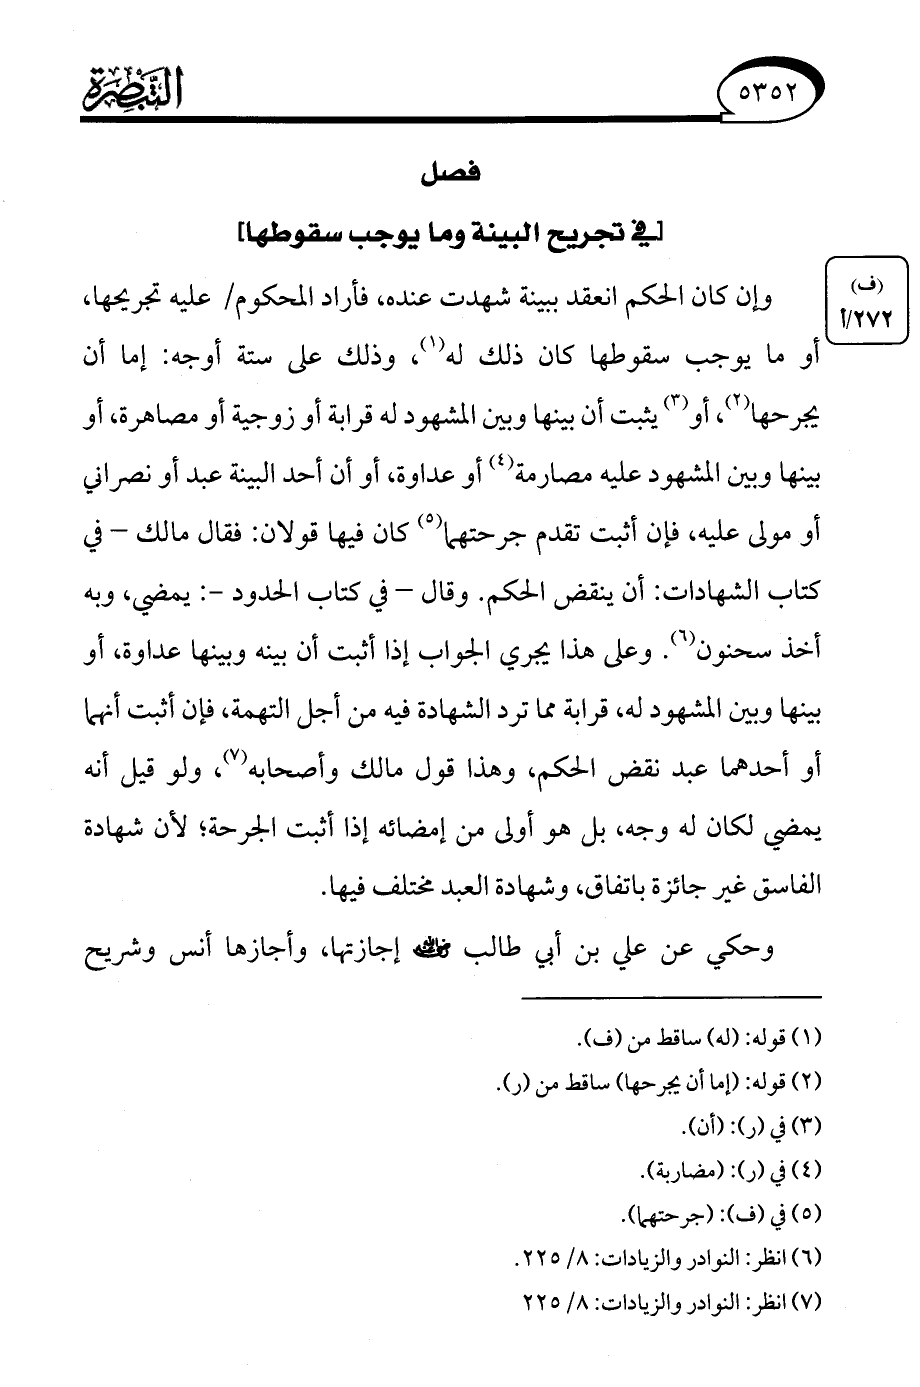 التبصرة
٥٣٥٢
فصل
[في تجريح البينة وما يوجب سقوطها]
(ف)
٢٧٢/أ
وإن كان الحكم انعقد ببينة شهدت عنده، فأراد المحكوم/ عليه تجريحها،
أو ما يوجب سقوطها كان ذلك له(١)، وذلك على ستة أوجه: إما أن
يجرحها(٢)، أو(٣) يثبت أن بينها وبين المشهود له قرابة أو زوجية أو مصاهرة، أو
بينها وبين المشهود عليه مصارمة(٤) أو عداوة، أو أن أحد البينة عبد أو نصراني
أو مولى عليه، فإن أثبت تقدم جرحتهما(٥) كان فيها قولان: فقال مالك – في
كتاب الشهادات: أن ينقض الحكم. وقال – في كتاب الحدود –: يمضي، وبه
أخذ سحنون(٦). وعلى هذا يجري الجواب إذا أثبت أن بينه وبينها عداوة، أو
بينها وبين المشهود له، قرابة مما ترد الشهادة فيه من أجل التهمة، فإن أثبت أنهما
أو أحدهما عبد نقض الحكم، وهذا قول مالك وأصحابه(٧)، ولو قيل أنه
يمضي لكان له وجه، بل هو أولى من إمضائه إذا أثبت الجرحة؛ لأن شهادة
الفاسق غير جائزة باتفاق، وشهادة العبد مختلف فيها.
وحكي عن علي بن أبي طالب إجازتها، وأجازها أنس وشريح
(١) قوله: (له) ساقط من (ف).
(٢) قوله: (إما أن يجرحها) ساقط من (ر).
(٣) في (ر): (أن).
(٤) في (ر): (مضاربة).
(٥) في (ف): (جرحتهما).
(٦) انظر: النوادر والزيادات: ٨/ ٢٢٥.
(٧) انظر: النوادر والزيادات: ٨/ ٢٢٥